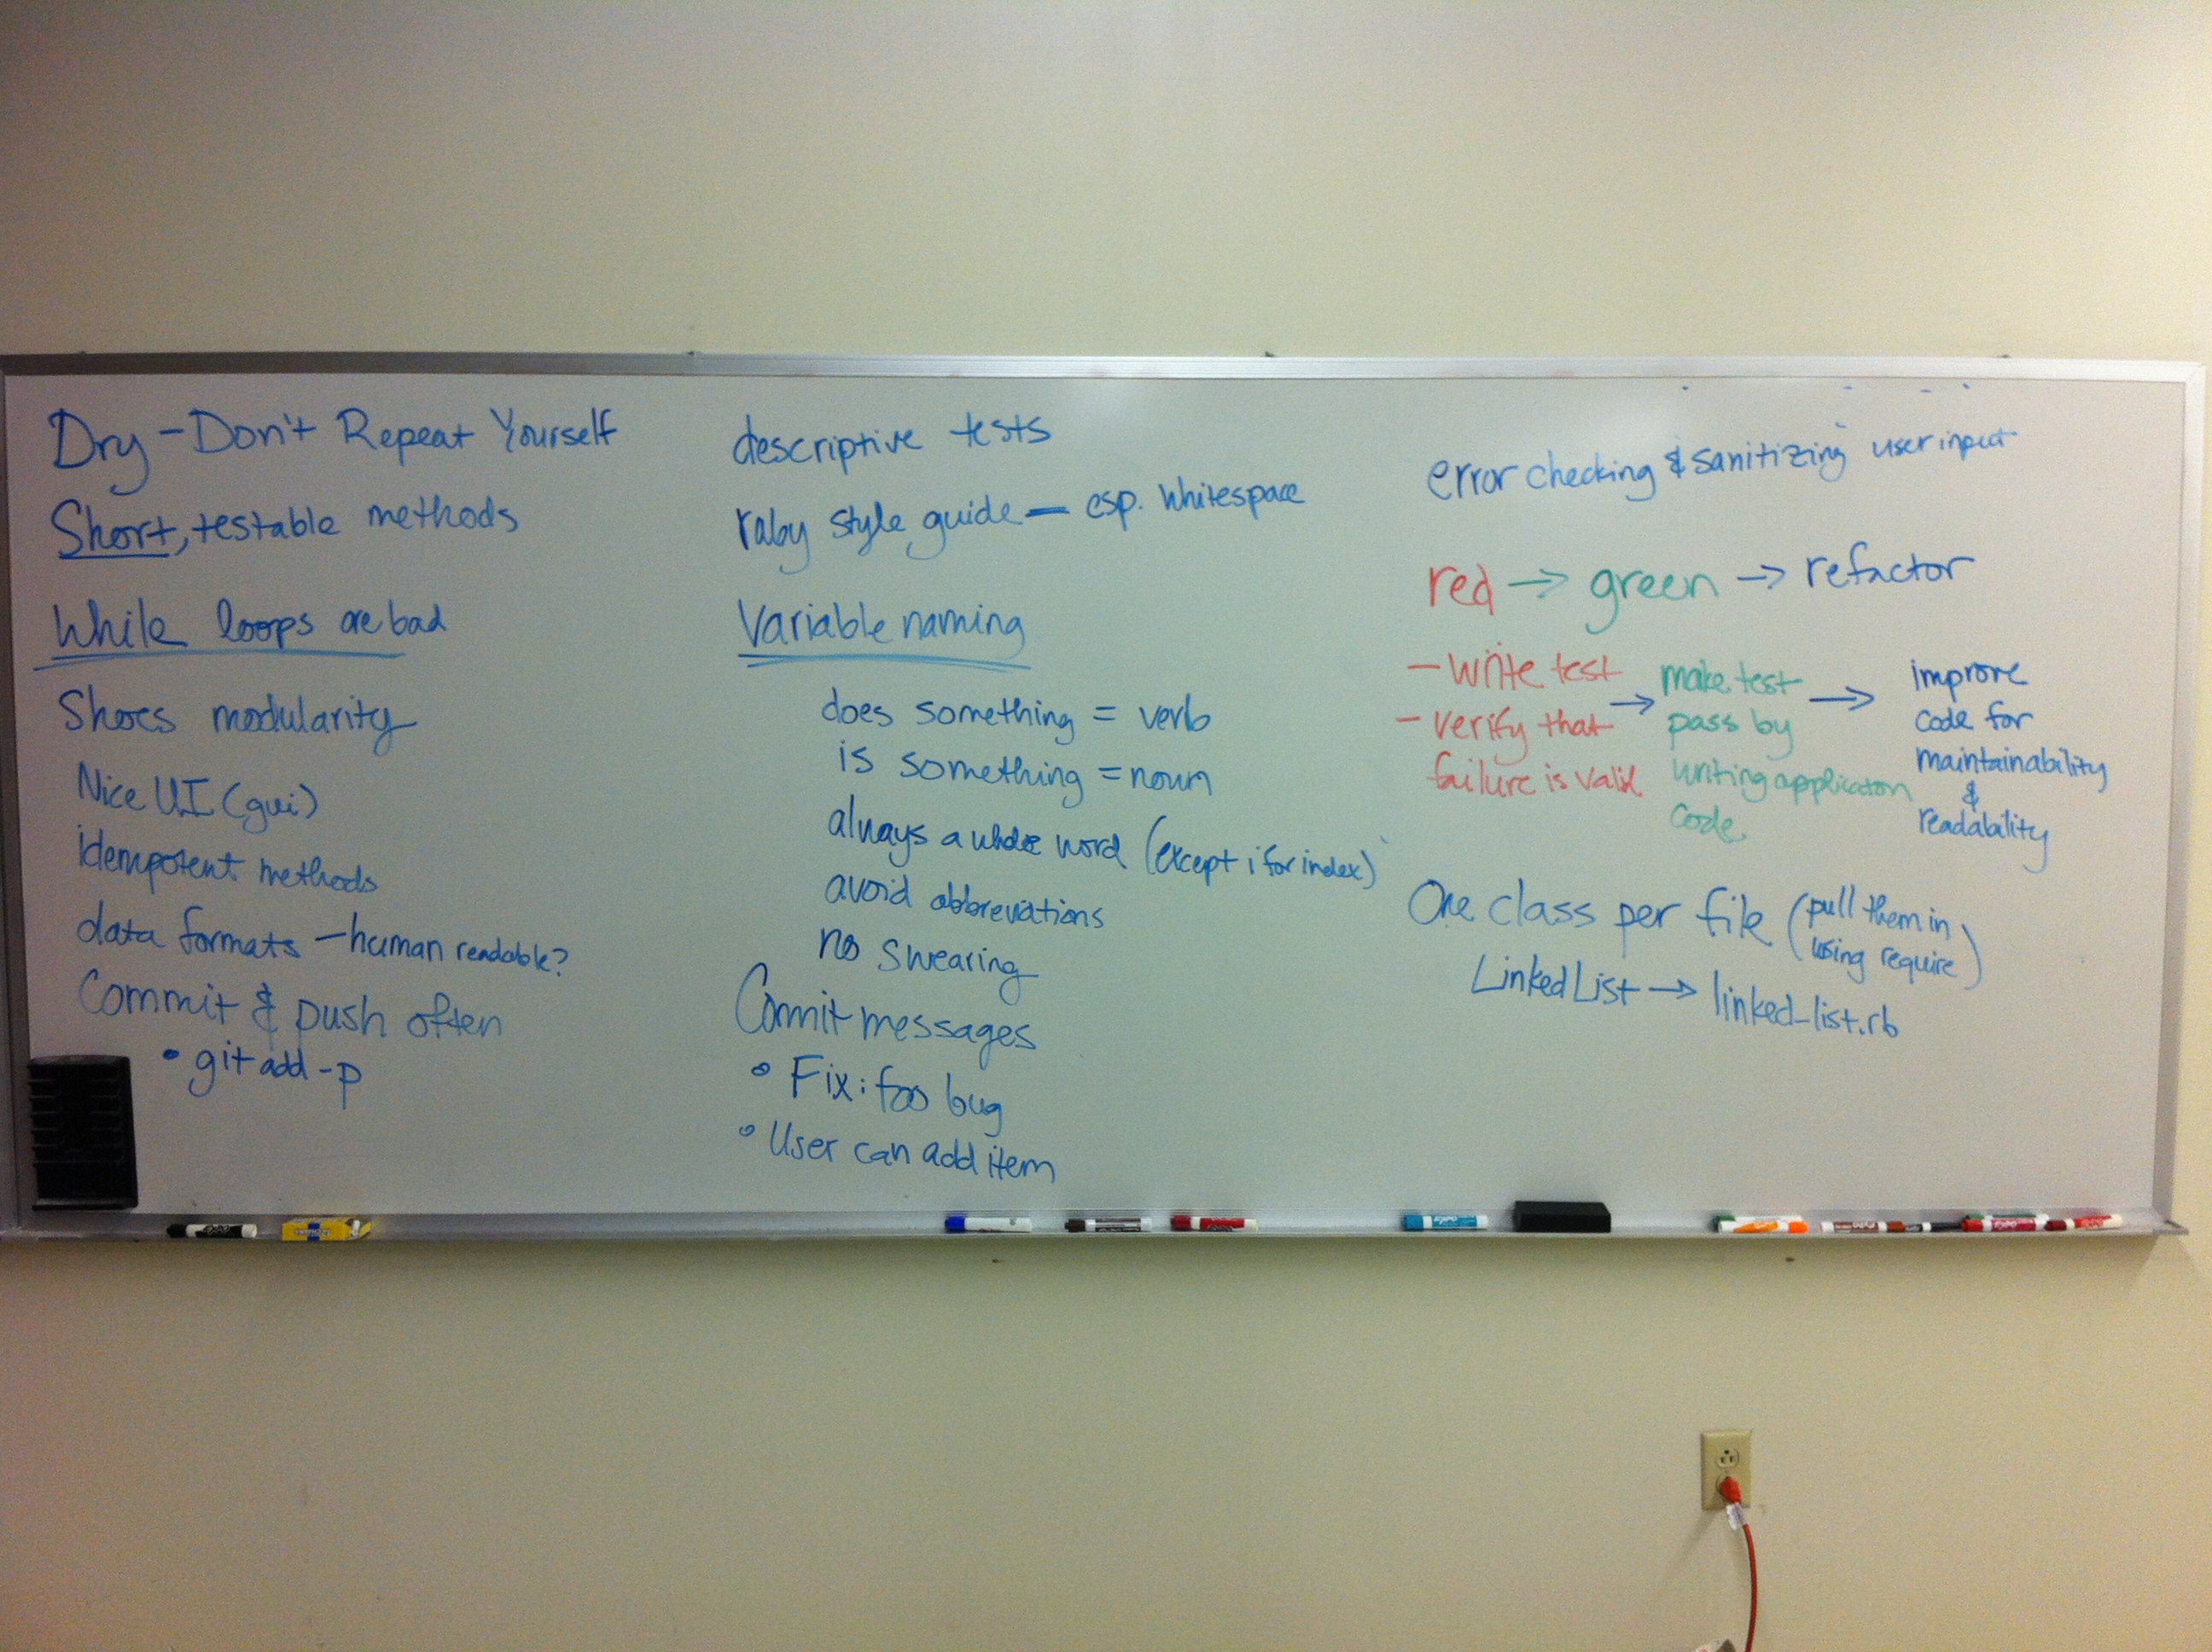 Dry - Don't Repeat Yourself
Short, testable methods
While loops are bad
Shoes modularity
Nice UI (gui)
idempotent methods
data formats - human readable?
Commit & push often
• git add -p
descriptive tests
ruby style guide — esp. whitespace
Variable naming
does something = verb
is something = noun
always a whole word (except i for index)
avoid abbreviations
no swearing
Commit messages
• Fix: foo bug
• User can add item
error checking & sanitizing user input
red → green → refactor
- write test
- verify that
failure is valid
→ make test
pass by
writing application
code
→ improve
code for
maintainability
&
readability
One class per file (pull them in
using require)
LinkedList → linked_list.rb